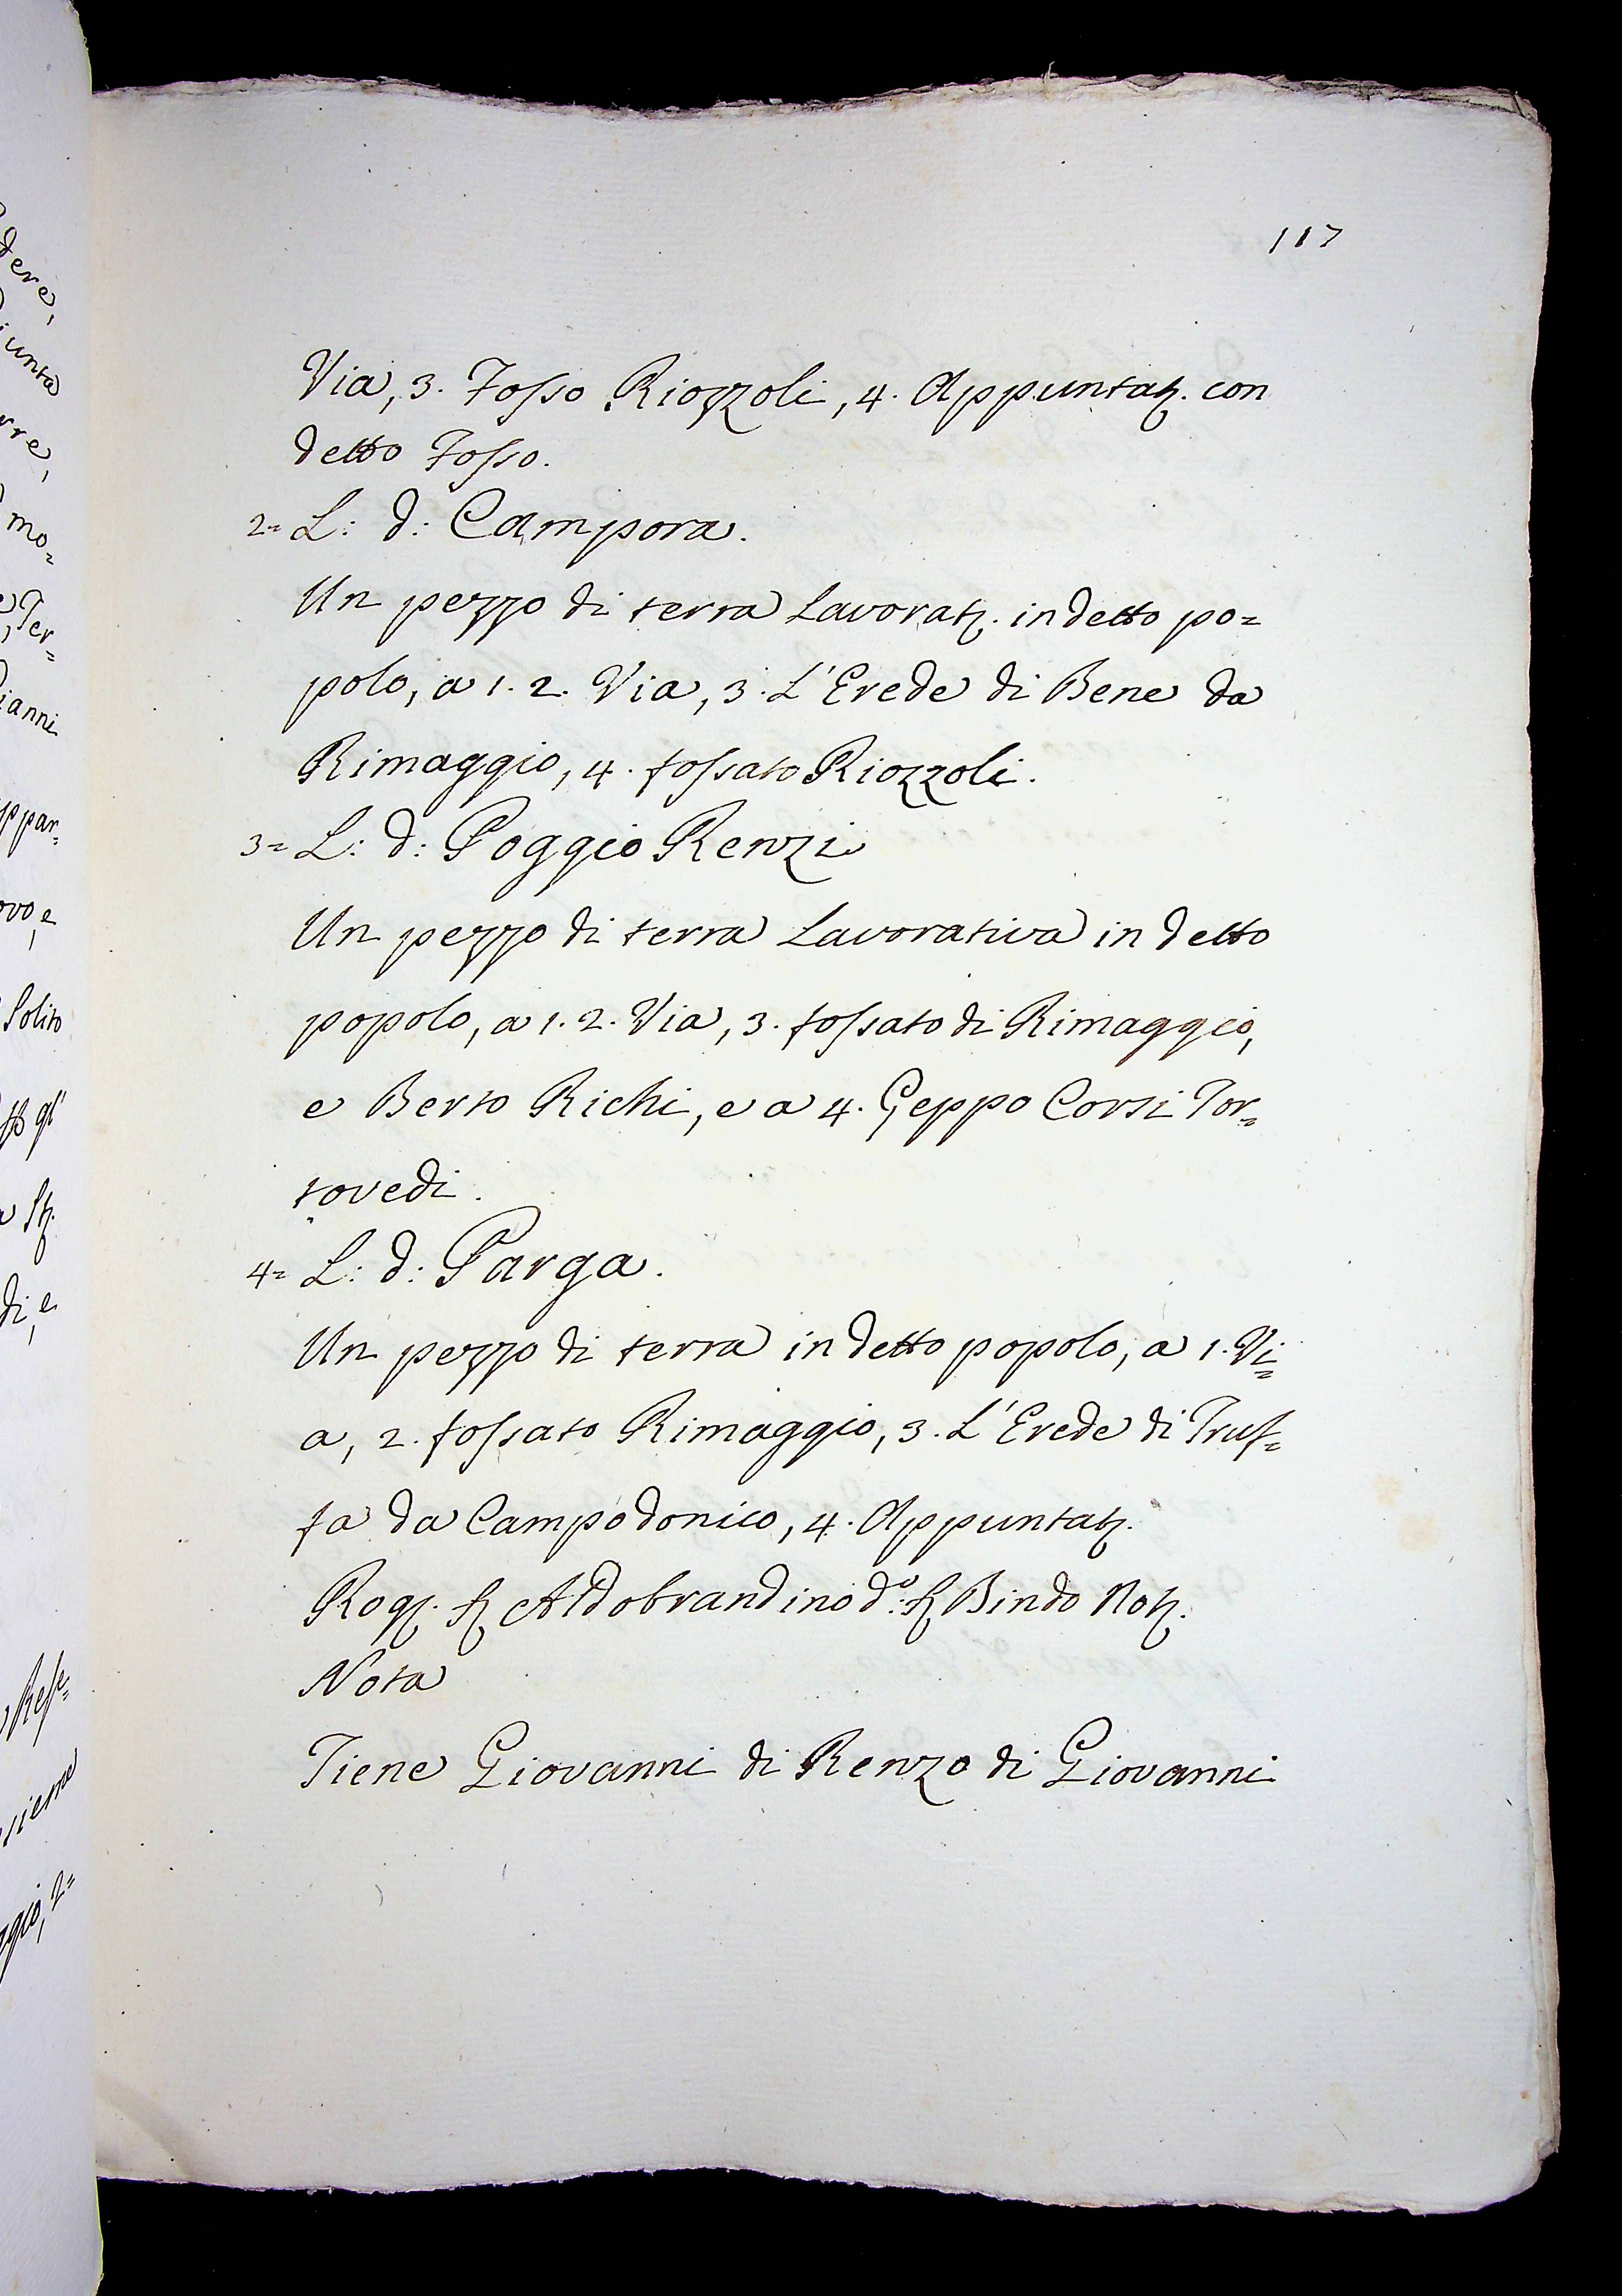 117
Via, 3. Fosso Riozzoli, 4. Appuntaz. con
detto Fosso.
2= L: d: Campora.
Un pezzo di terra Lavorat. in detto po=
polo, a 1. 2. Via, 3. L'Erede di Bene da
Rimaggio, 4. fossato Riozzoli.
3= L: d: Poggio Renzi
Un pezzo di terra Lavorativa in detto
popolo, a 1. 2. Via, 3. fossato di Rimaggio,
e Berto Richi, e a 4. Geppo Corsi Tor=
tovedi.
4= L: d: Parga.
Un pezzo di terra in detto popolo, a 1. Vi=
a, 2. fossato Rimaggio, 3. L'Erede di Truf=
fa da Campodonico, 4. Appuntaz.
Rog. Aldobrandino d.º Bindo Not.
Nota
Tiene Giovanni di Renzo di Giovanni